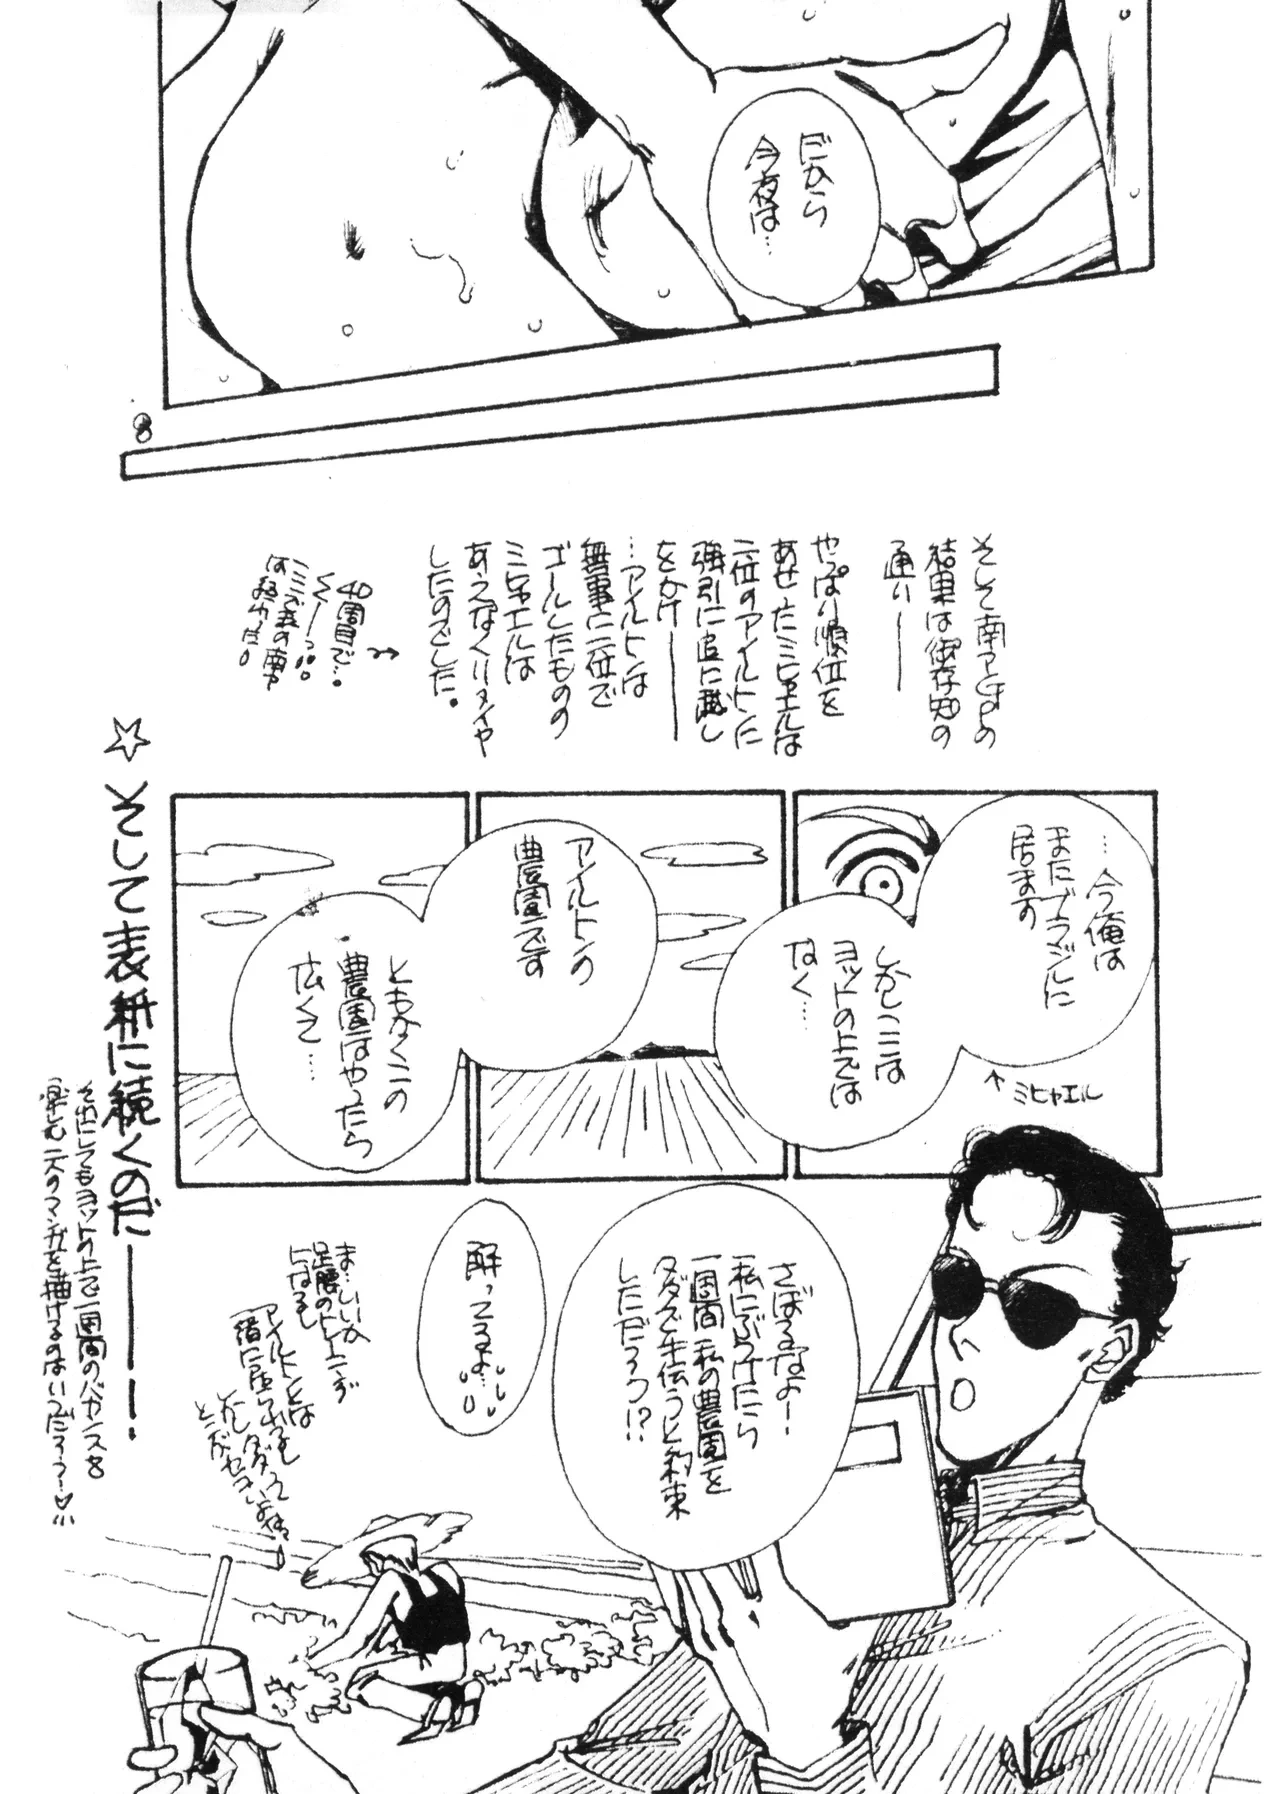 だから
今夜は…
8
そして南アとGPの
結果は御存知の
通り――
やっぱり順位を
あせったミヒャエルは
二位のアイルトンに
強引に追い越し
をかけ――
…アイルトンは
無事に二位で
ゴールしたものの
ミヒャエルは
あえなくリタイヤ
したのでした。
40周目で…。
くくーっ!!
ここで表の南ア
は終わった!
☆そして表紙に続くのだ――!
それにしてもヨットの上で一週間のバカンスを
楽しむ二人のマンガを描けるのはいつだろう…♡
…今俺は
まだブラジルに
居ます
しかしここは
ヨットの上では
なく…
アイルトンの
農園です
ともかくこの
農園はやったら
広くて…
↑ミヒャエル
さぼるなよー
私にぶつけたら
一週間私の農園を
タダで手伝うと約束
しただろう!?
解ってるよ…
ま…いいか
足腰のトレーニング
になるし
アイルトンとは
一緒に居れるし